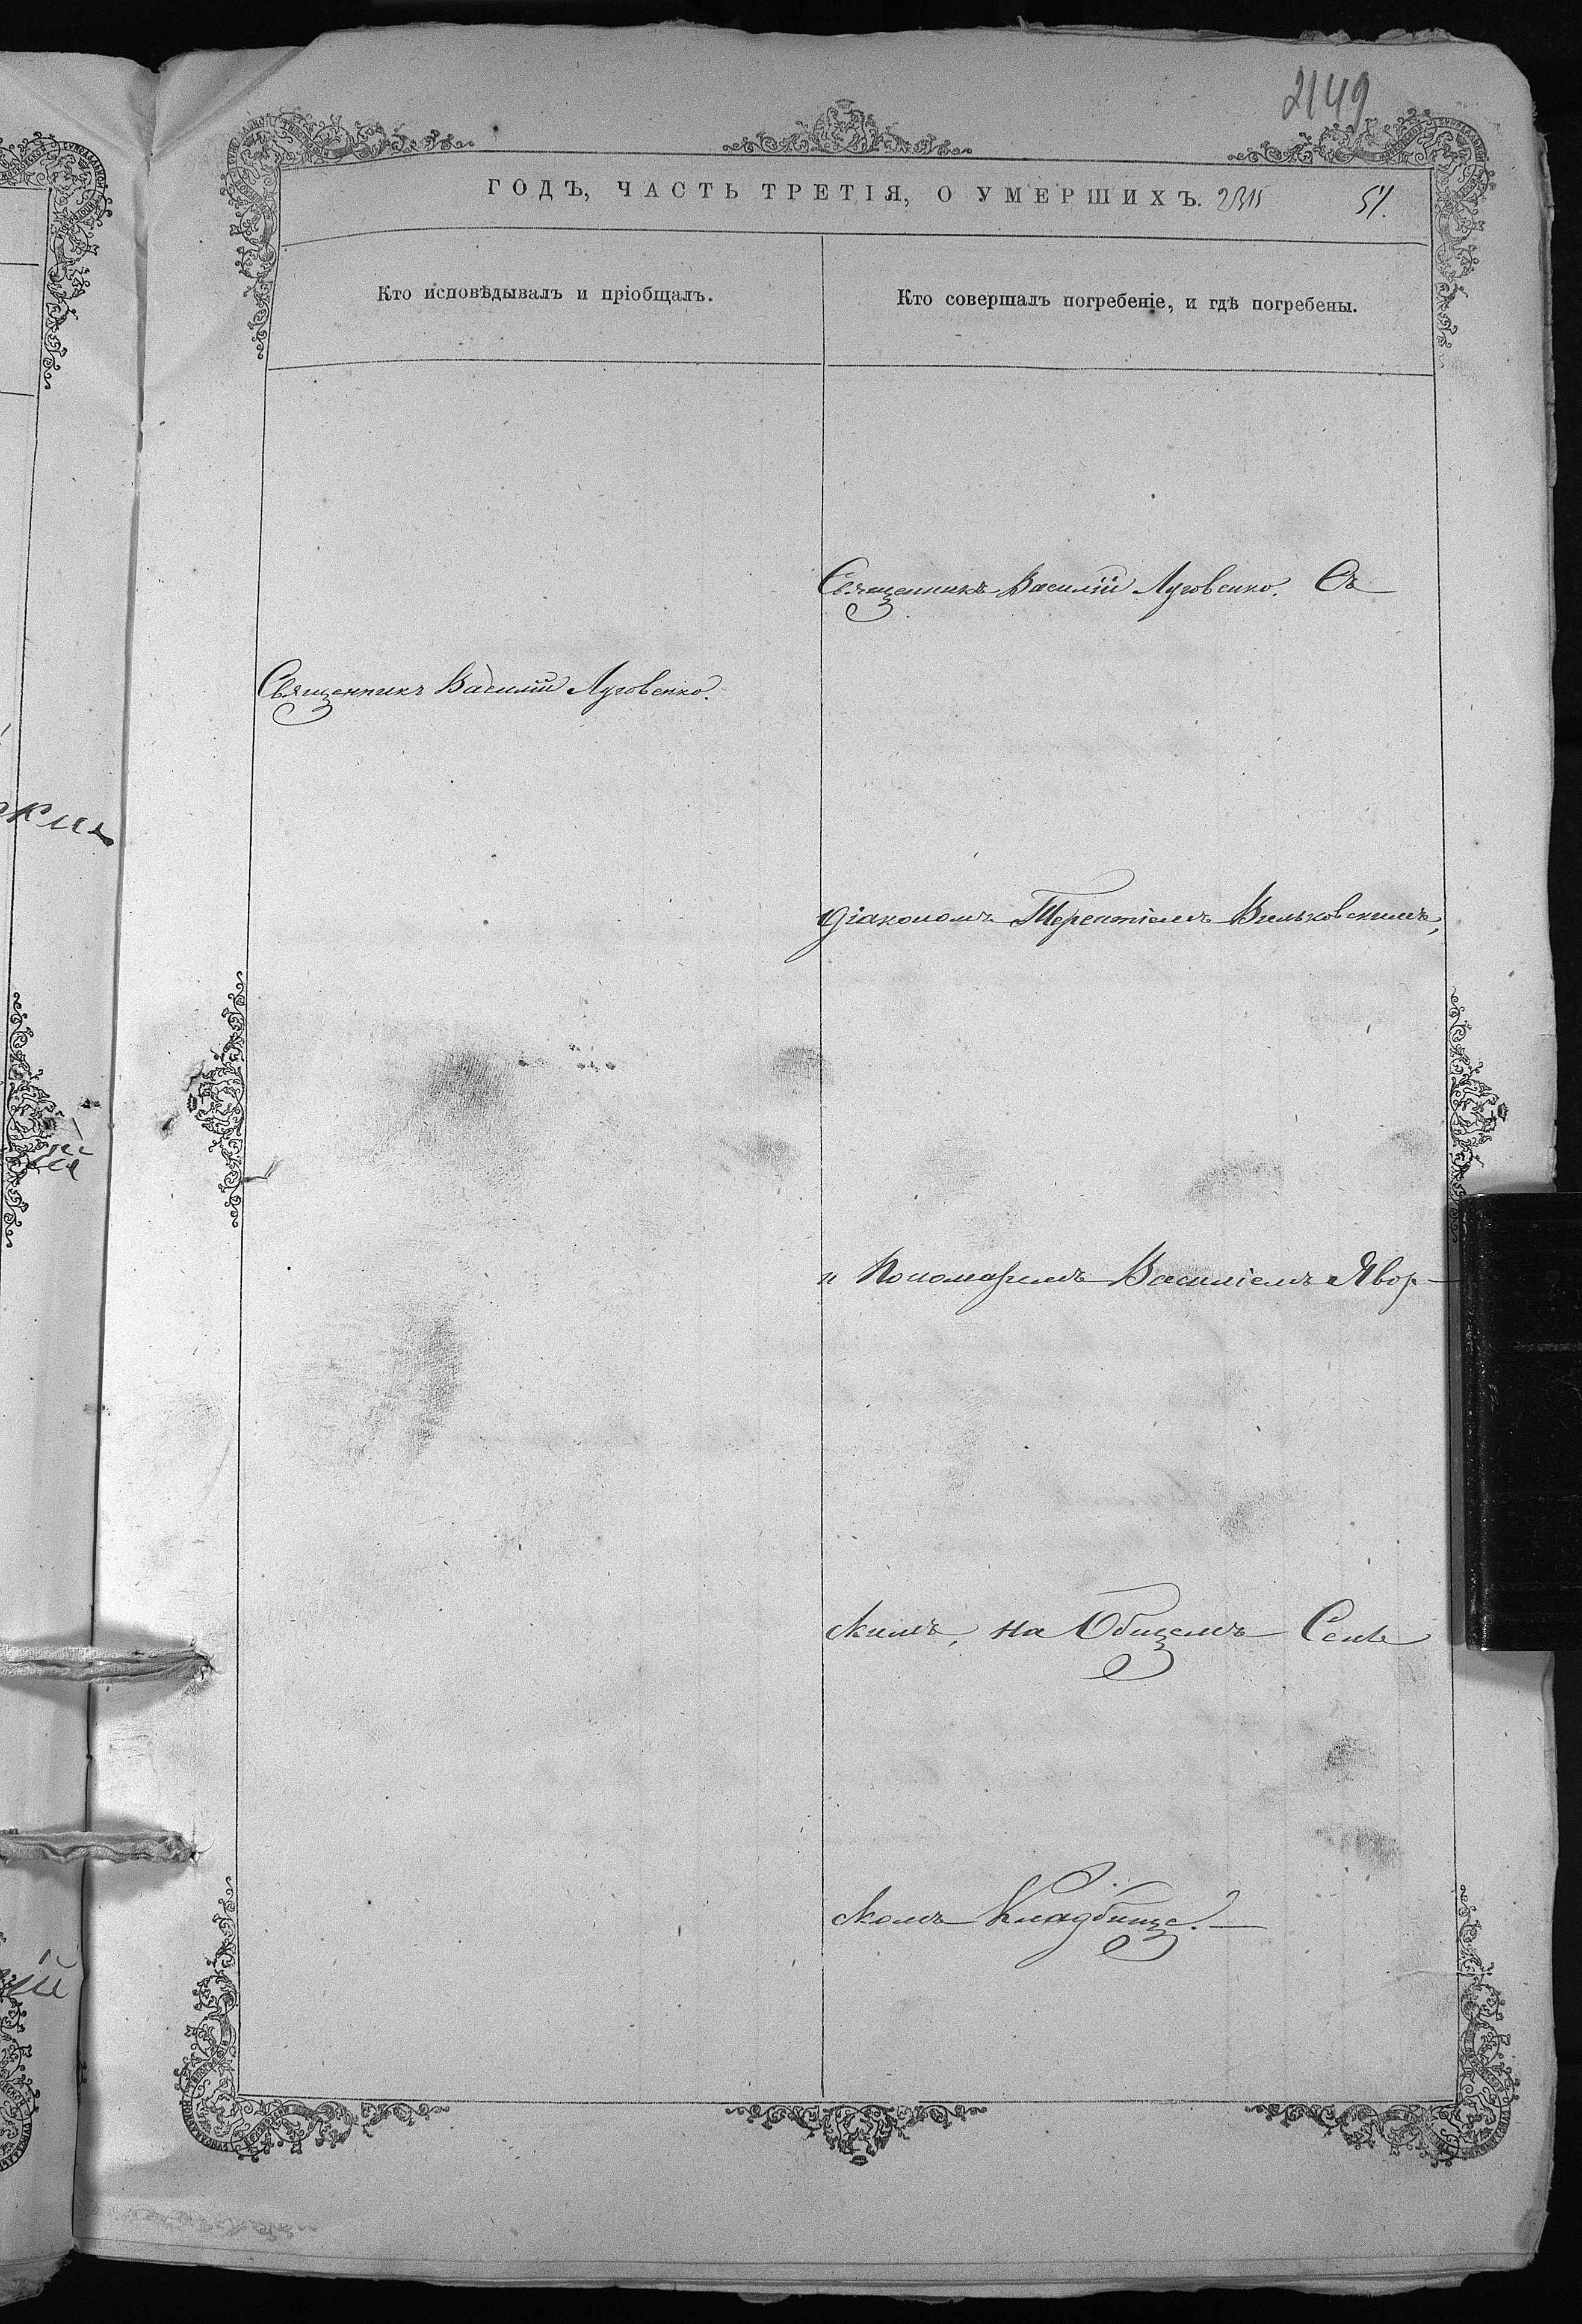 2149
ГОДЪ, ЧАСТЬ ТРЕТІЯ, О УМЕРШИХЪ. 51.
Кто исповѣдывалъ и пріобщалъ.
Кто совершалъ погребеніе, и гдѣ погребены.
Священникъ Василій Луговенко.
Священникъ Василій Луговенко. Съ
діакономъ Терентіемъ Вильковскимъ,
и Пономаремъ Василіемъ Явор-
скимъ, на Общемъ Сель
скомъ Кладбище.